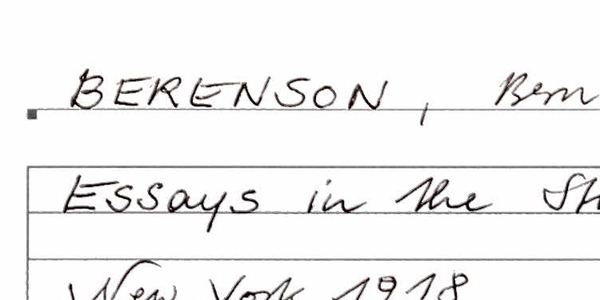 BERENSON, Bern
Essays in the St
New York 1918